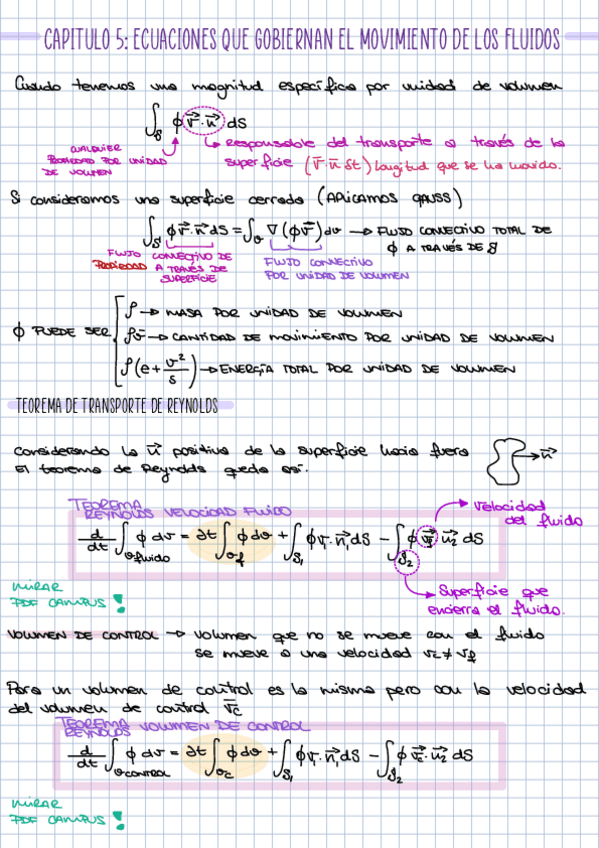 CAPITULO 5: ECUACIONES QUE GOBIERNAN EL MOVIMIENTO DE LOS FLUIDOS
Cuando tenemos una magnitud específica por unidad de volumen
∫_S ϕ v⃗·n⃗ dS
CUALQUIER PROPIEDAD POR UNIDAD DE VOLUMEN
Responsable del transporte a través de la
superficie (v̄·n̄ δt) longitud que se ha movido.
Si consideramos una superficie cerrada (APLICAMOS GAUSS)
∫_S ϕ v⃗·n⃗ dS = ∫_v ∇(ϕv⃗) dv → FLUJO CONVECTIVO TOTAL DE
ϕ A TRAVÉS DE S
FLUJO CONVECTIVO DE PROPIEDAD A TRAVÉS DE SUPERFICIE
FLUJO CONVECTIVO POR UNIDAD DE VOLUMEN
ρ → MASA POR UNIDAD DE VOLUMEN
ϕ PUEDE SER ρv̄ → CANTIDAD DE MOVIMIENTO POR UNIDAD DE VOLUMEN
ρ(e + v²/s) → ENERGÍA TOTAL POR UNIDAD DE VOLUMEN
TEOREMA DE TRANSPORTE DE REYNOLDS
Considerando la n⃗ positiva de la superficie hacia fuera
El teorema de Reynolds queda así:
n⃗
TEOREMA REYNOLDS VELOCIDAD FLUIDO
Velocidad del fluido
d/dt ∫_v fluido ϕ dv = ∂t ∫_vf ϕ dv + ∫_S₁ ϕ v⃗·n⃗₁ dS − ∫_S₂ ϕ v⃗f n⃗₂ dS
Superficie que encierra el fluido.
MIRAR
PDF CAMPUS!
VOLUMEN DE CONTROL → Volumen que no se mueve con el fluido
se mueve a una velocidad vc ≠ vf
Para un volumen de control es la misma pero con la velocidad
del volumen de control v̄c
TEOREMA REYNOLDS VOLUMEN DE CONTROL
d/dt ∫_v CONTROL ϕ dv = ∂t ∫_vc ϕ dv + ∫_S₁ ϕ v⃗·n⃗₁ dS − ∫_S₂ ϕ v⃗c·n⃗₂ dS
MIRAR
PDF CAMPUS!